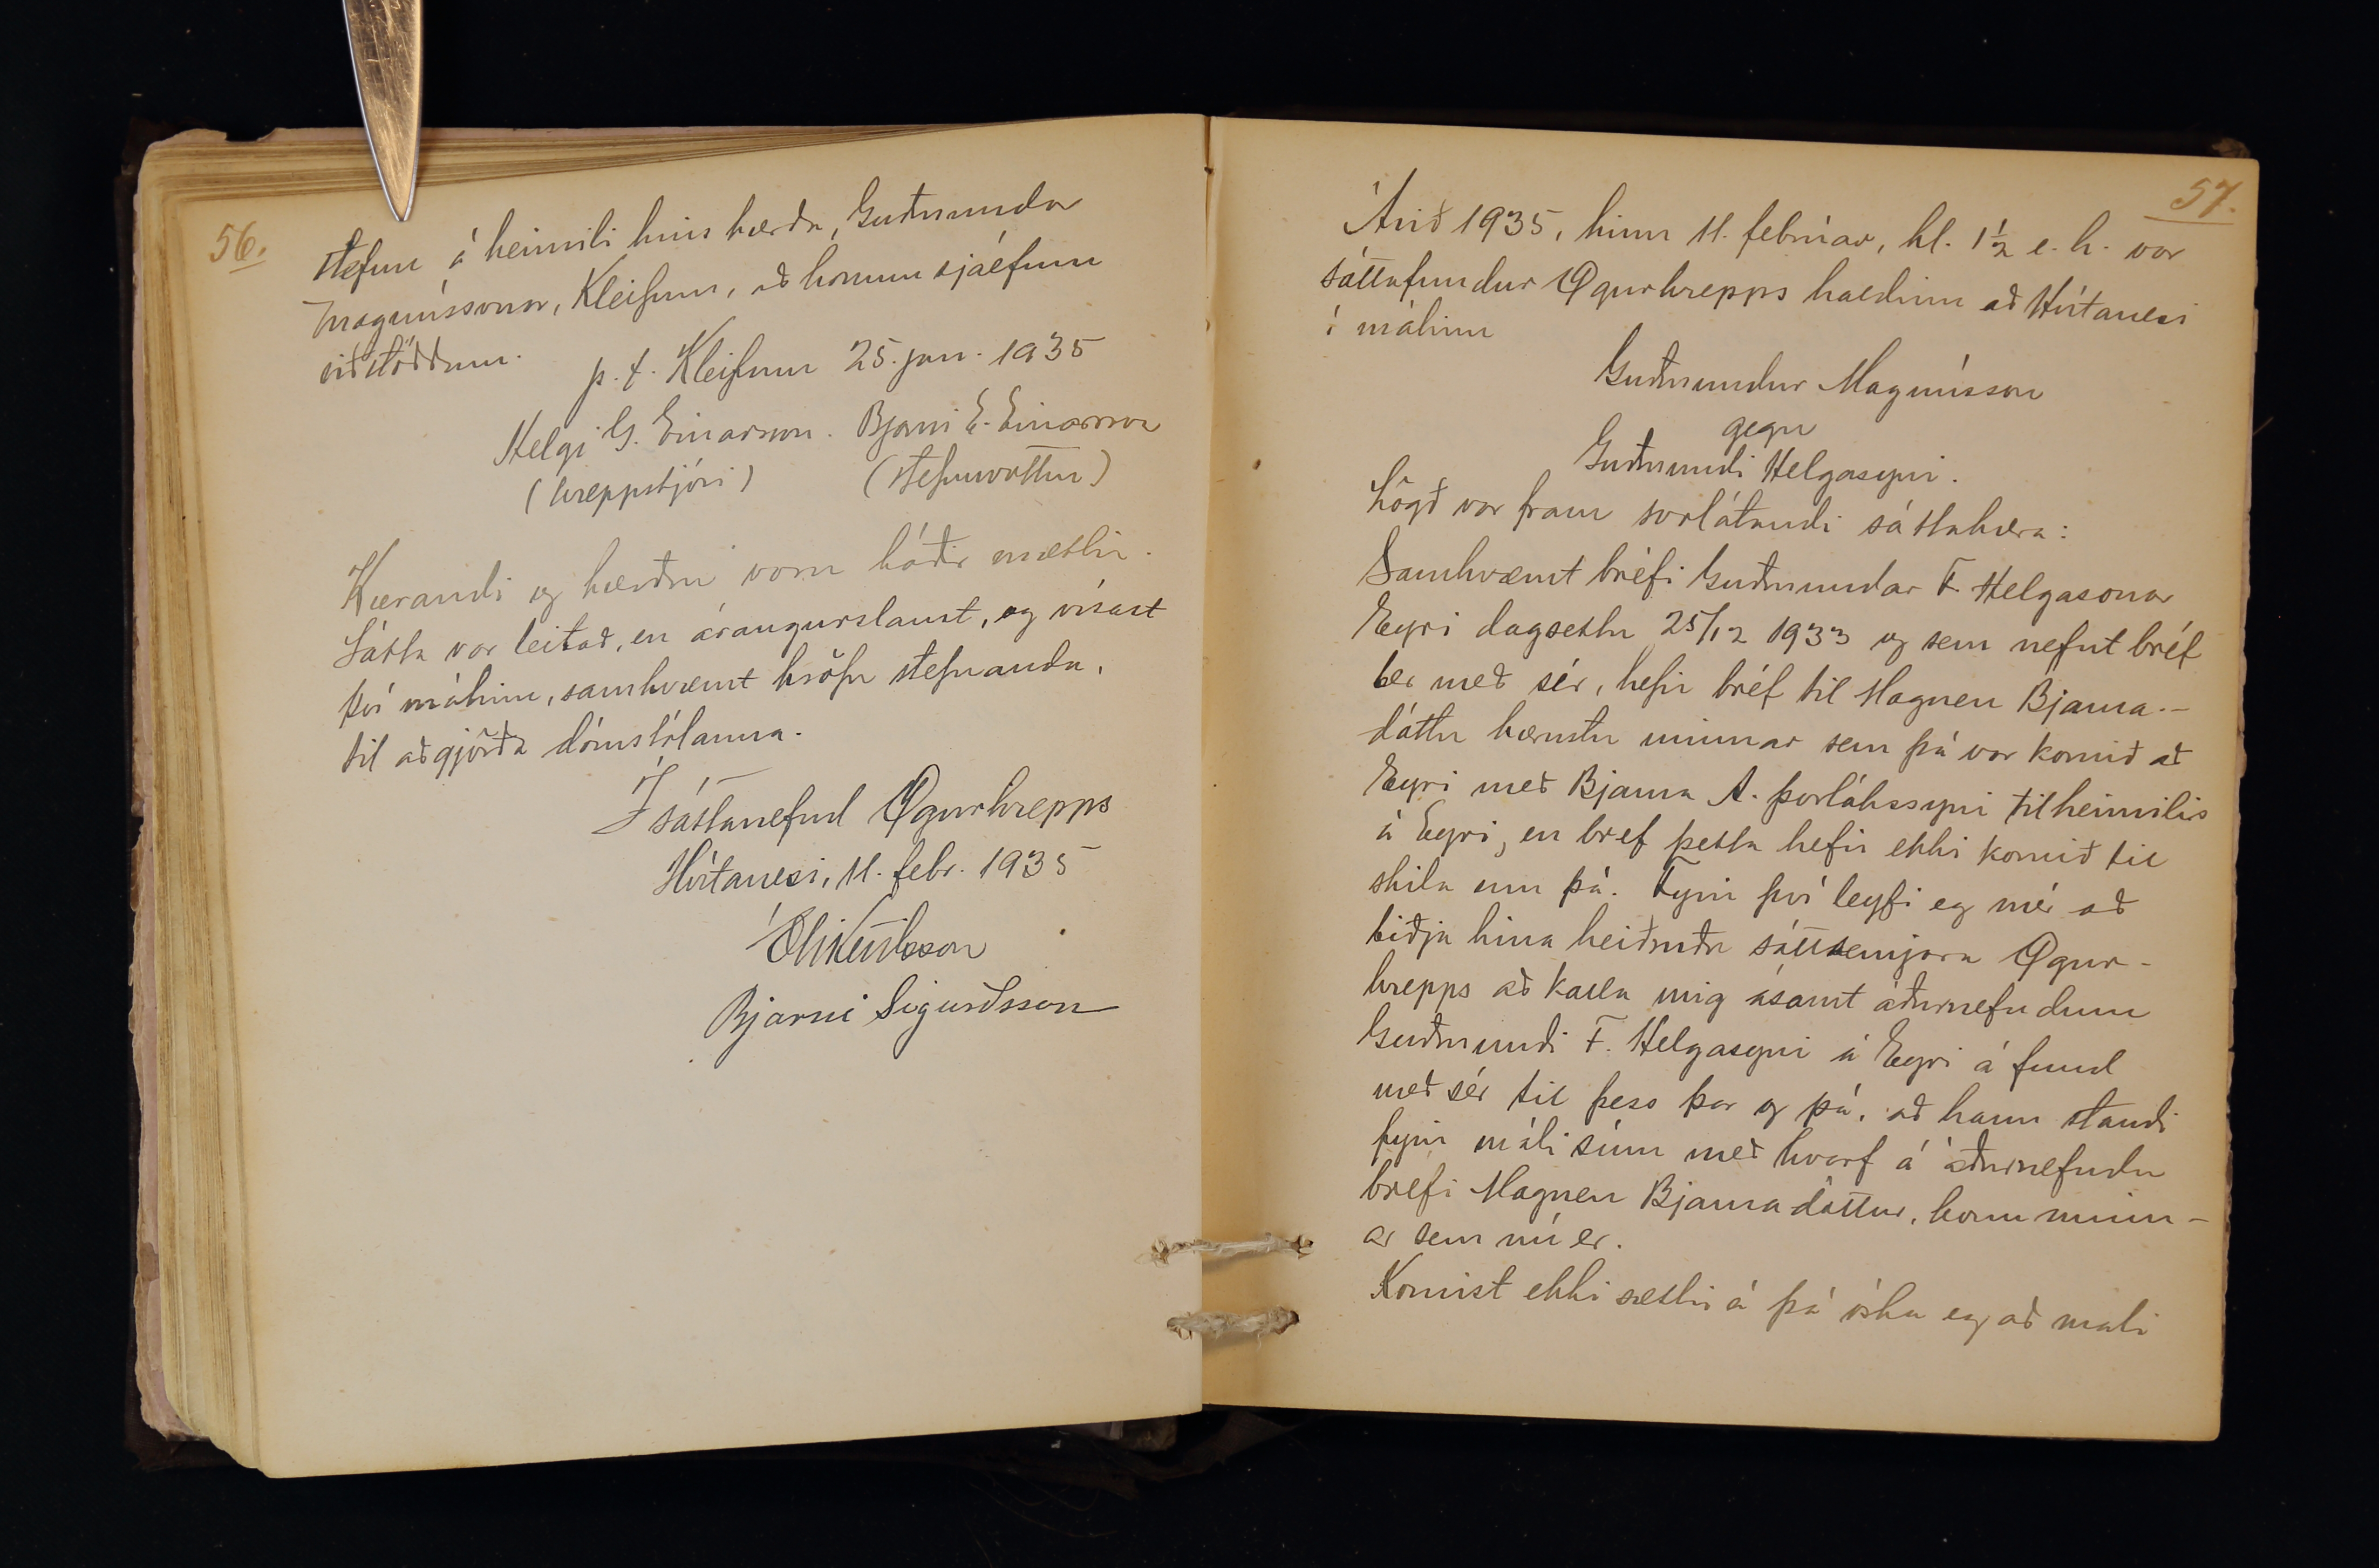 56.
stefnu á heimili hins kærða, Guðmundar
Magnússonar, Kleifum, að honum sjálfum
viðstöddum.
p.t. Kleifum 25. jan. 1935
Helgi G. Einarsson. Bjarni E. Einarsson
(hreppstjóri) (stefnuvottur)
Kærandi og kærður voru báðir mættir.
Sátta var leitað, en árangurslaust, og vísast
því málinu, samkvæmt kröfu stefnanda,
til aðgjörða dómstólanna.
Í sáttanefnd Ögurhrepps
Hvítanesi, 11. febr. 1935
Bjarni Sigurðsson
57.
Árið 1935, hinn 11. febrúar, kl. 1½ e.h. var
sáttafundur Ögurhrepps haldinn að Hvítanesi
í málinu
Guðmundur Magnússon
gegn
Guðmundi Helgasyni.
Lögð var fram svolátandi sáttakæra:
Samkvæmt bréfi Guðmundar F. Helgasonar
Eyri dagsettu 25/12 1933 og sem nefnt bréf
ber með sér, hefir bréf til Magneu Bjarna-
dóttur kærustu minnar sem þá var komið að
Eyri með Bjarna A. Þorlákssyni til heimilis
á Eyri, en bref þetta hefir ekki komið til
skila enn þá. Fyrir því leyfi eg mér að
biðja hina heiðruðu sáttsemjara Ögur-
hrepps að kalla mig ásamt áðurnefndum
Guðmundi F. Helgasyni á Eyri á fund
með sér til þess þar og þá, að hann standi
fyrir máli sínu með hvarf á áðurnefndu
bréfi Magneu Bjarnadóttur, konu minn-
ar sem nú er.
Komist ekki sættir á þá óska eg að mali